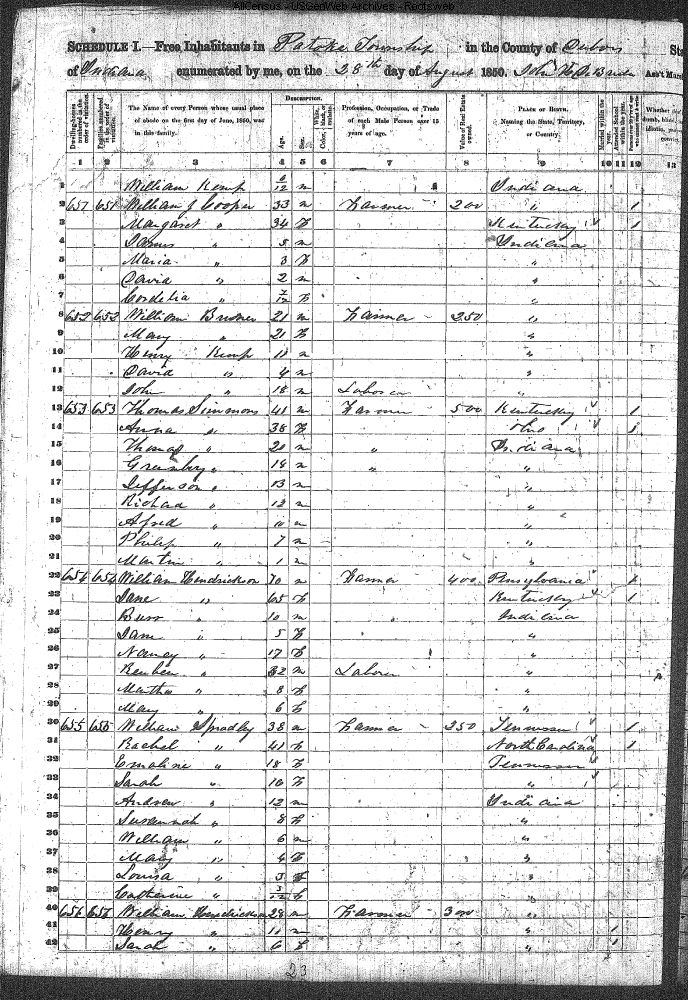 AllCensus - USGenWeb Archives - Rootsweb
SCHEDULE I.—Free Inhabitants in Patoka Township in the County of Dubois
of Indiana enumerated by me, on the 28th day of August 1850. Ass't Mars
Dwelling-houses numbered in the order of visitation. Families numbered in the order of visitation. The Name of every Person whose usual place of abode on the first day of June, 1850, was in this family. DESCRIPTION. Age. Sex. Color, White, black, or mulatto. Profession, Occupation, or Trade of each Male Person over 15 years of age. Value of Real Estate owned. PLACE OF BIRTH. Naming the State, Territory, or Country. Married within the year. Attended School within the year.
1 2 3 4 5 6 7 8 9 10 11 12 13
1 William Kemp 6/12 m Indiana
2 651 651 William J Cooper 33 m Farmer 200 " 1
3 Margaret " 34 F Kentucky 1
4 James " 5 m Indiana
5 Maria " 3 F "
6 David " 2 m "
7 Cordelia " 7/12 F "
8 652 652 William 21 m Farmer 250 "
9 Mary " 21 F "
10 Henry Kemp 11 m "
11 David " 4 m "
12 John " 18 m Laborer "
13 653 653 Thomas Simmons 41 m Farmer 500 Kentucky 1
14 Anna " 38 F Ohio 1
15 Thomas " 20 m " Indiana
16 Greenbry " 18 m " "
17 Jefferson " 13 m "
18 Richard " 12 m "
19 Alfred " 10 m "
20 Philip " 7 m "
21 Martin " 1 m "
22 654 654 William Hendrickson 70 m Farmer 400 Pensylvania 1
23 Jane " 65 F Kentucky 1
24 " 10 m Indiana
25 Jane " 5 F "
26 Nancy " 17 F "
27 Reuben " 32 m Laborer "
28 Martha " 8 F "
29 Mary " 6 F "
30 655 655 William Spradley 38 m Farmer 350 Tennessee 1
31 Rachel " 41 F North Carolina 1
32 Emaline " 18 F Tennessee
33 Sarah " 16 F "
34 Andrew " 12 m Indiana
35 Susannah " 8 F "
36 William " 6 m "
37 Mary " 4 F "
38 Louisa " 3 F "
39 Catherine " 3/12 F "
40 656 656 William Hendrickson 28 m Farmer 300 "
41 Henry " 11 m " 1
42 Sarah " 6 F " 1
23